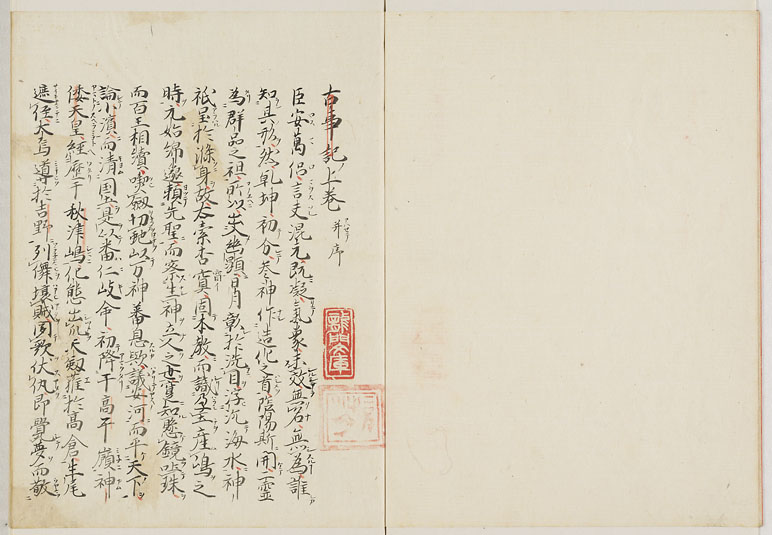 古事記上卷 并序
臣安萬侶言夫混元既凝氣象未效無名無為誰
知其形然乾坤初分參神作造化之首陰陽斯開二靈
為群品之祖所以出入幽顯日月彰於洗目浮沉海水神
祇呈於滌身故太素杳冥因本教而識孕土產嶋之
時元始綿邈頼先聖而察生神立人之世寔知懸鏡吐珠
而百王相續喫劔切虵以万神蕃息歟議安河而平天下
論小濱而清国土是以番仁岐命初降于高千嶺神
倭天皇經歷于秋津嶋化熊出爪天劔獲於高倉生尾
遮徑大烏導於吉野列儛攘賊聞歌伏仇即覺夢而敬